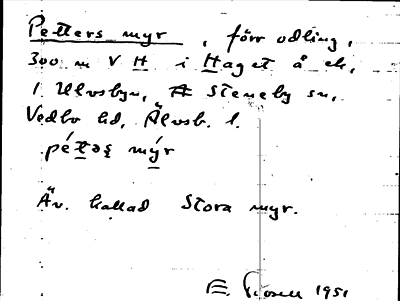 Petters myr, förr odling,
300 m V H i Haget å ek,
1 Ulvsbyn, Steneby sn,
Vedbo hd, Älvsb. l.
péttəş mýr
Äv. kallad Stora myr.
E. 1951